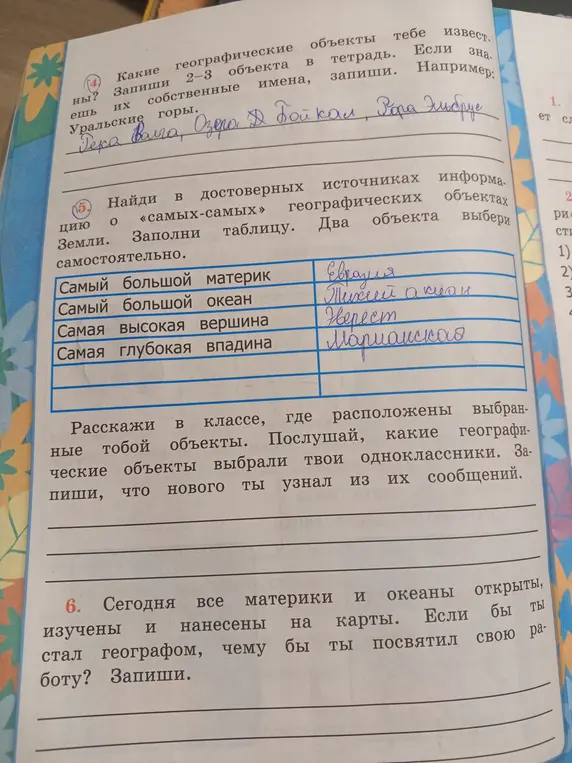 4. Какие географические объекты тебе извест-
ны? Запиши 2–3 объекта в тетрадь. Если зна-
ешь их собственные имена, запиши. Например:
Уральские горы.
Река Волга, Озера Байкал, Гора Эльбрус
5. Найди в достоверных источниках информа-
цию о «самых-самых» географических объектах
Земли. Заполни таблицу. Два объекта выбери
самостоятельно.
Самый большой материк Евразия
Самый большой океан Тихий океан
Самая высокая вершина Эверест
Самая глубокая впадина Марианская
Расскажи в классе, где расположены выбран-
ные тобой объекты. Послушай, какие географи-
ческие объекты выбрали твои одноклассники. За-
пиши, что нового ты узнал из их сообщений.
6. Сегодня все материки и океаны открыты,
изучены и нанесены на карты. Если бы ты
стал географом, чему бы ты посвятил свою ра-
боту? Запиши.
1.
ет сл
2
ри
ст
1)
2)
3